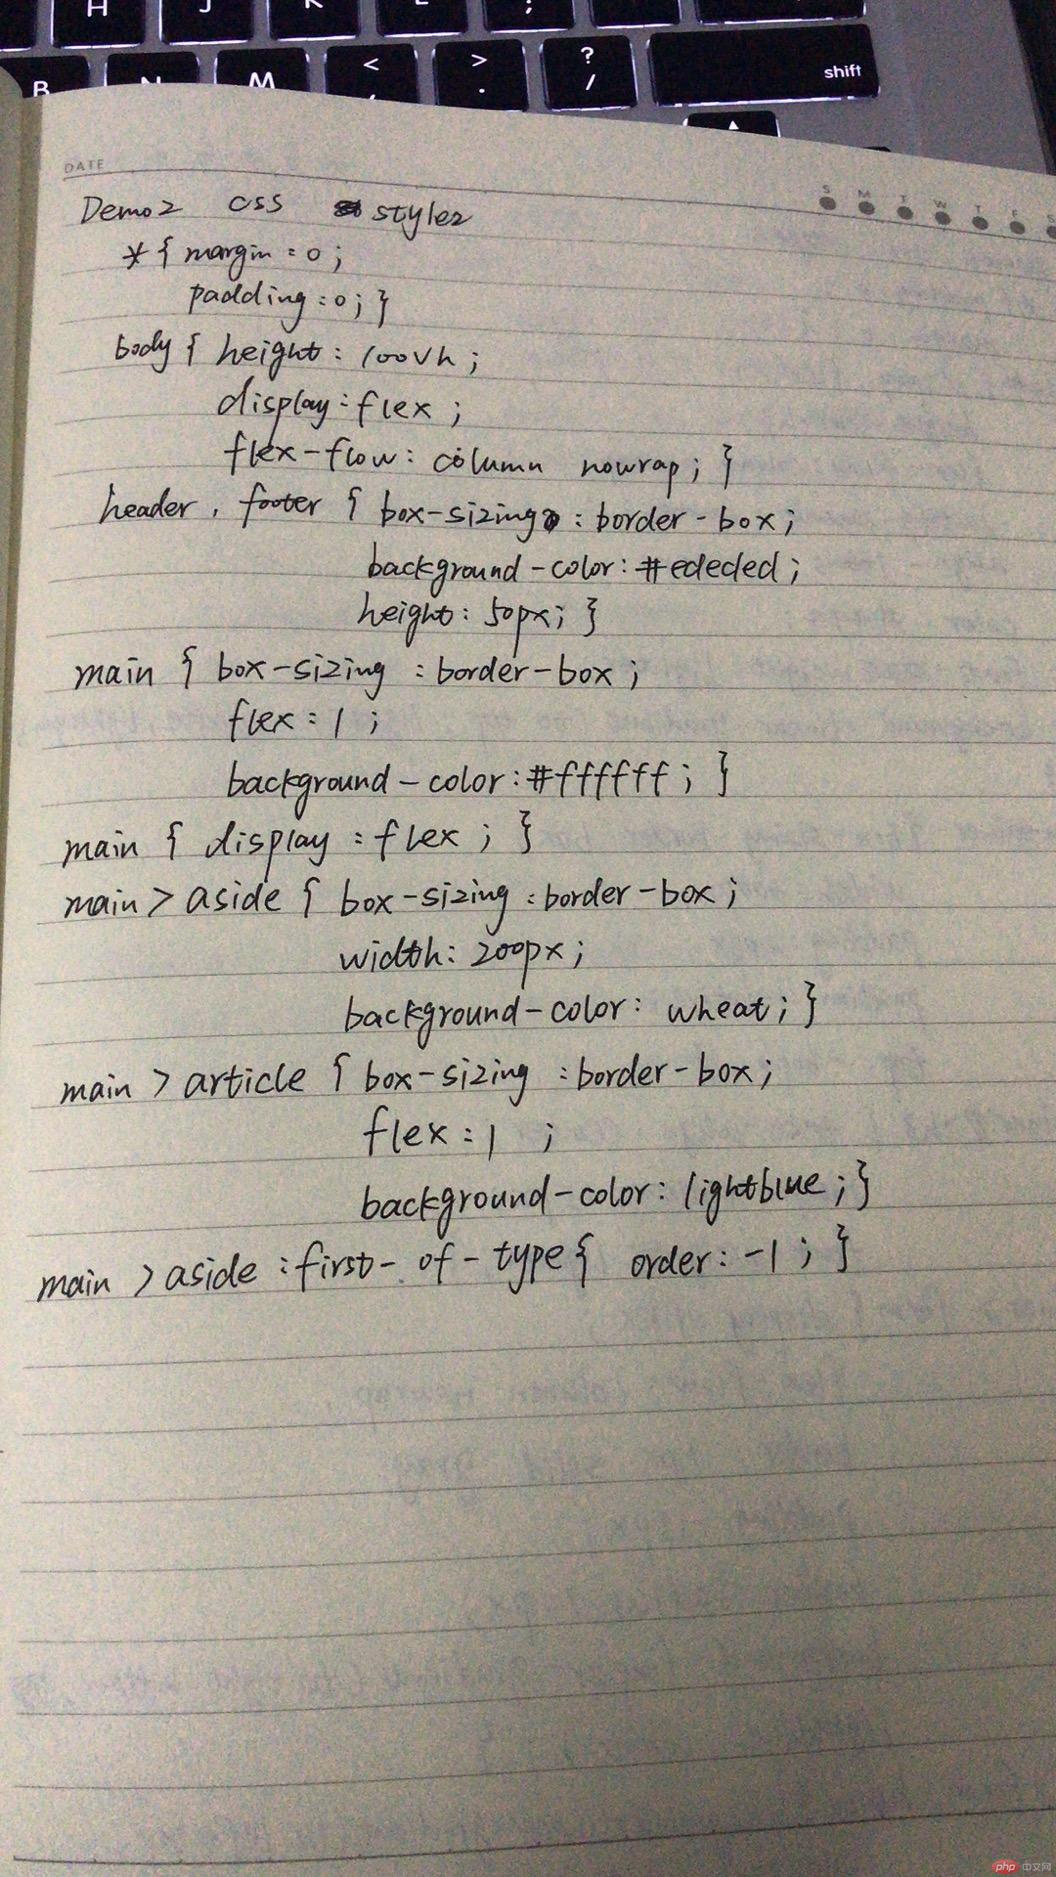 H J K L ;
B N M < , > . ? / shift
DATE
S M T W T F S
Demo2 css style2
*{ margin:0;
padding:0; }
body { height: 100vh;
display:flex;
flex-flow: column nowrap; }
header, footer { box-sizing: border-box;
background-color: #ededed;
height: 50px; }
main { box-sizing :border-box;
flex:1 ;
background-color:#ffffff; }
main { display :flex; }
main > aside { box-sizing :border-box;
width: 200px;
background-color: wheat; }
main > article { box-sizing :border-box;
flex:1 ;
background-color: lightblue; }
main > aside :first-of-type{ order: -1; }
php 中文网